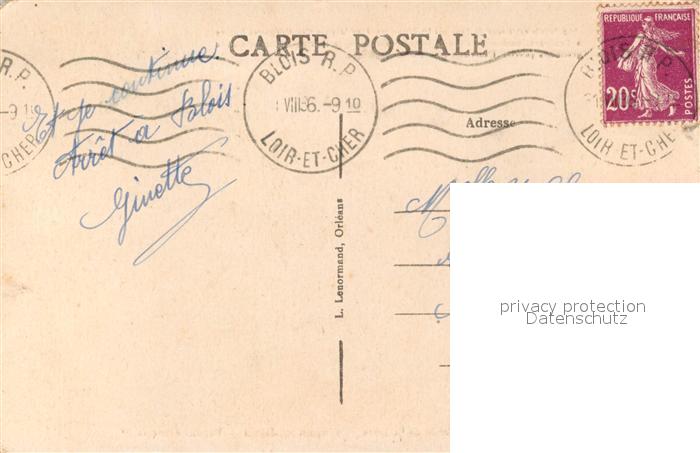 CARTE POSTALE
RÉPUBLIQUE FRANÇAISE
20c
POSTES
R.P
-9
CHER
BLOIS R.P
VIII36.-9 10
LOIR-ET-CHER
BLOIS R.P
LOIR ET-CHE
Et je continue.
Arrêt a Blois
Ginette
Adresse
L. Lenormand, Orléans
Mlle
privacy protection
Datenschutz